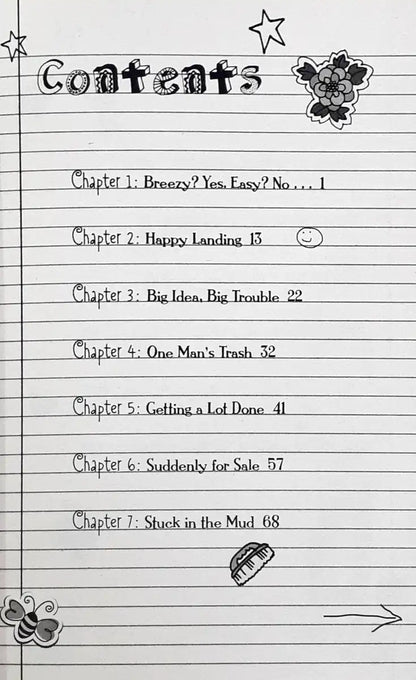 Contents
Chapter 1: Breezy? Yes. Easy? No . . . 1
Chapter 2: Happy Landing 13
Chapter 3: Big Idea, Big Trouble 22
Chapter 4: One Man's Trash 32
Chapter 5: Getting a Lot Done 41
Chapter 6: Suddenly for Sale 57
Chapter 7: Stuck in the Mud 68